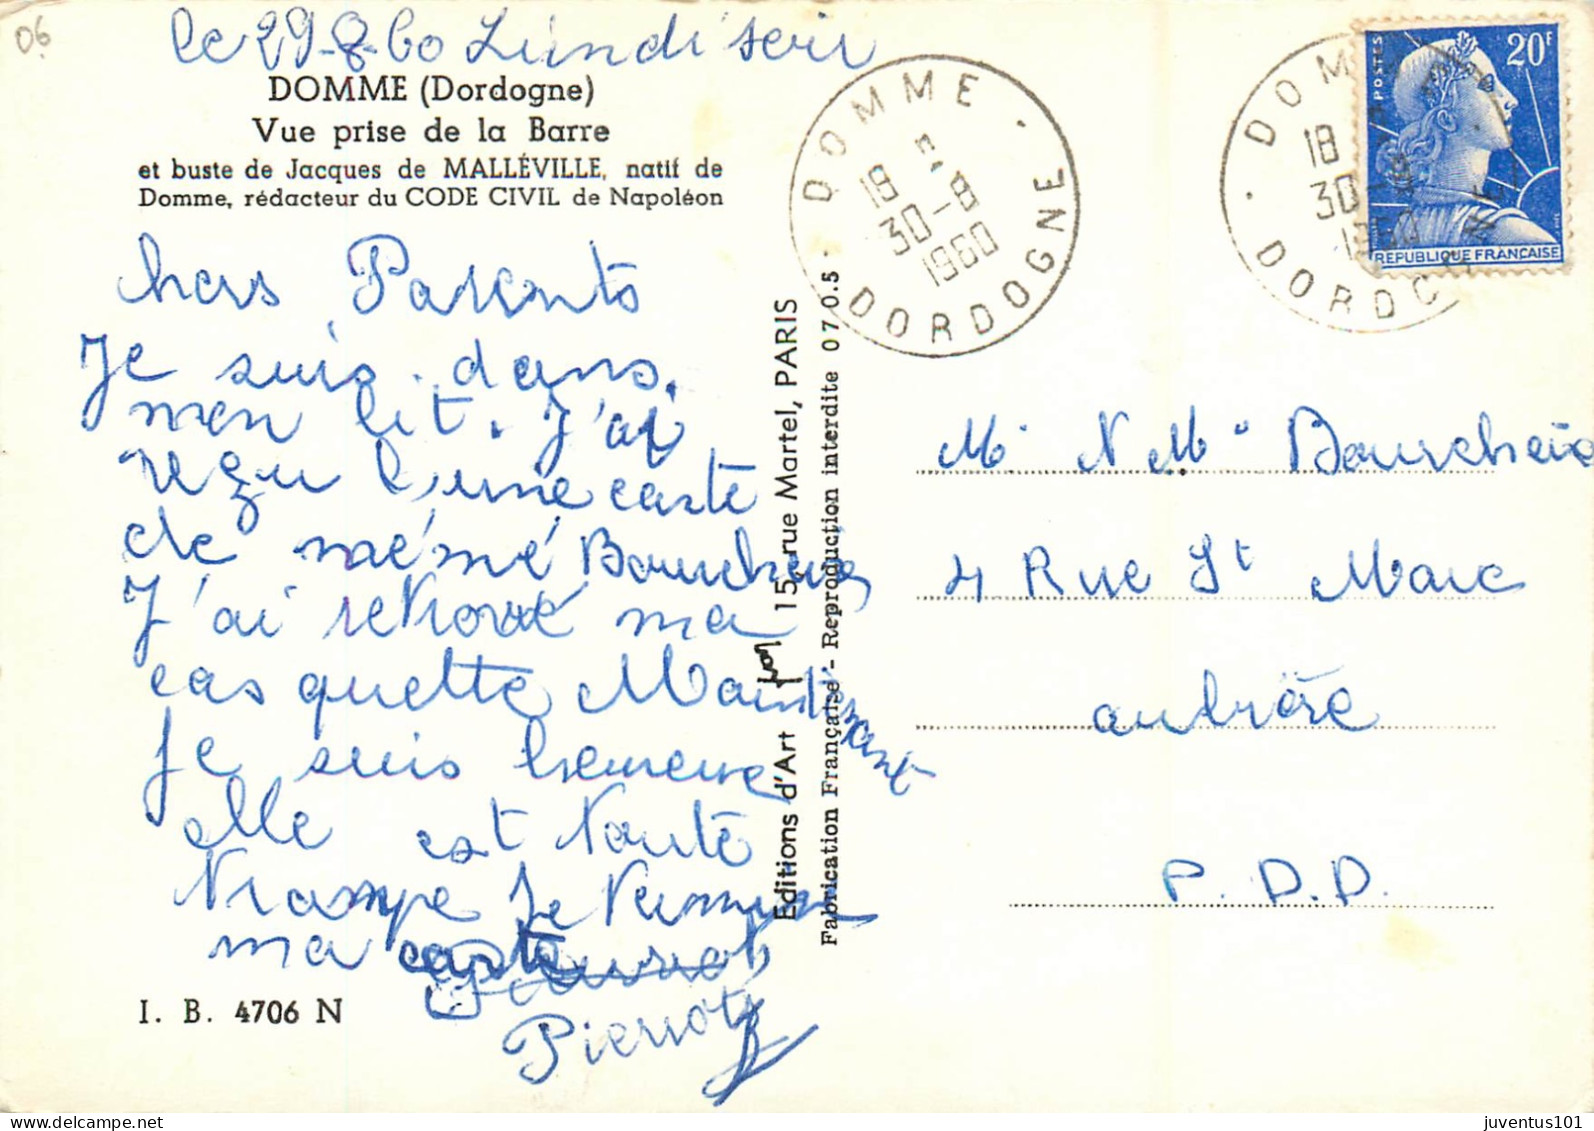 06
le 29-8-60 Lundi soir
DOMME (Dordogne)
Vue prise de la Barre
et buste de Jacques de MALLÉVILLE, natif de
Domme, rédacteur du CODE CIVIL de Napoléon
chers Parents
Je suis dans
mon lit. J'ai
reçu une carte
de mémé
J'ai retrouvé ma
casquette Maintenant
je suis heureux
elle est toute
trampe Je termine
ma carte
Pierrot
I. B. 4706 N
Editions d'Art 15, rue Martel, PARIS
Fabrication Française - Reproduction interdite 07.05.
DOMME
18
30-8
1960
DORDOGNE
DOMME
18
30-8
1960
DORDOGNE
POSTES
20F
REPUBLIQUE FRANÇAISE
Mr N Me
4 Rue St Marc
aubière
P.D.D.
juventus101